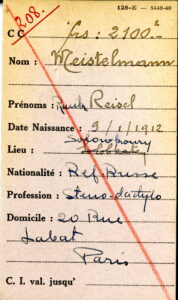 138-E — 5449-40
208.
CC frs: 2100.-
Nom : Meistelmann
Prénoms : Reisel
Date Naissance : 9/1/1912
Lieu :
Nationalité : Réf. Russe
Profession : Steno-dactylo
Domicile : 20 Rue
Labat
Paris
C. I. val. jusqu'